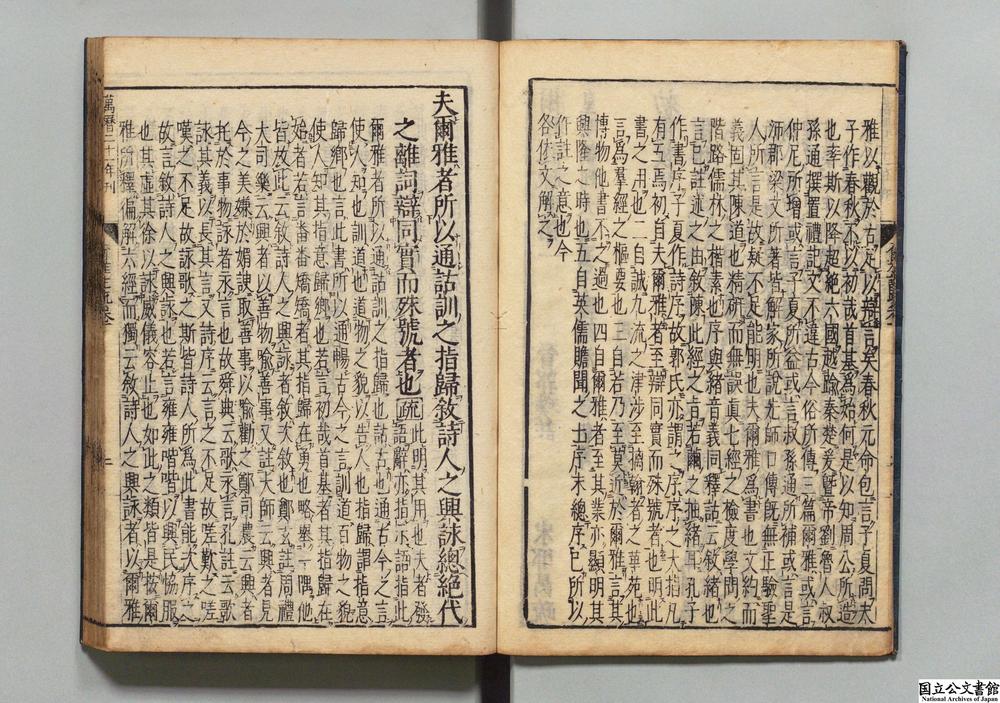 雅以觀於古足以辯言矣春秋元命包言子夏問夫
子作春秋不以初哉首基爲始何是以知周公所造
也率斯以降超絕六國越踰秦楚爰暨帝劉魯人叔
孫通撰置禮記文不違古今俗所傳三篇爾雅或言
仲尼所增或言子夏所益或言叔孫通所補或言是
沛郡梁文所著皆解家所說先師口傳既無正驗聖
人所言是故疑不足能明也夫爾雅爲書也文約而
義固其陳道也精研而無誤真七經之檢度學問之
階路儒林之楷素也序與緒音義同釋詁云敘緒也
言已註述之由敘陳此經之言若繭之抽緒耳孔子
作書序子夏作詩序故郭氏亦謂之序序之大指凡
有五焉初自夫爾雅者至辯同實而殊號者也明此
書之用也二自誠九流之津涉至摛翰者之華苑也
言爲羣經之樞要也三自若乃至莫近於爾雅言其
博物他書不之過也四自爾雅者至其業亦顯明其
興隆之時也五自英儒贍聞之士序末總序己所以
作註之意也今
各依文解之
夫爾雅者所以通詁訓之指歸敘詩人之興詠總絕代
之離詞辯同實而殊號者也疏此明其用也夫者發語辭亦指示語指此
爾雅者所以通詁訓之指歸也詁古也通古今之言
使人知也訓道也道物之貌以告人也指歸謂指意
歸鄉也言此書所以通暢古今之言訓道百物之貌
使人知其指意歸鄉也若言初哉首基者其指歸在
始者若言番番矯矯者其指歸在勇也略舉一隅他
皆放此云敘詩人之興詠者敘次敘也鄭玄註周禮
大司樂云興者以善物喻善事又註大師云興者見
今之美嫌於媚諛取善事以喻勸之鄭司農云興者
托於事物詠者永言也故舜典云歌永言孔註云歌
詠其義以長其言又詩序云言之不足故嗟歎之嗟
嘆之不足故詠歌之斯皆詩人所爲此書能次序之
故言敘詩人之興詠也若言雍雍喈喈以興民協服
也其虛其徐以詠威儀容止也如此之類皆是故爾
雅所釋徧解六經而獨云敘詩人之興詠者以爾雅
萬曆二十一年刊
国立公文書館
National Archives of Japan